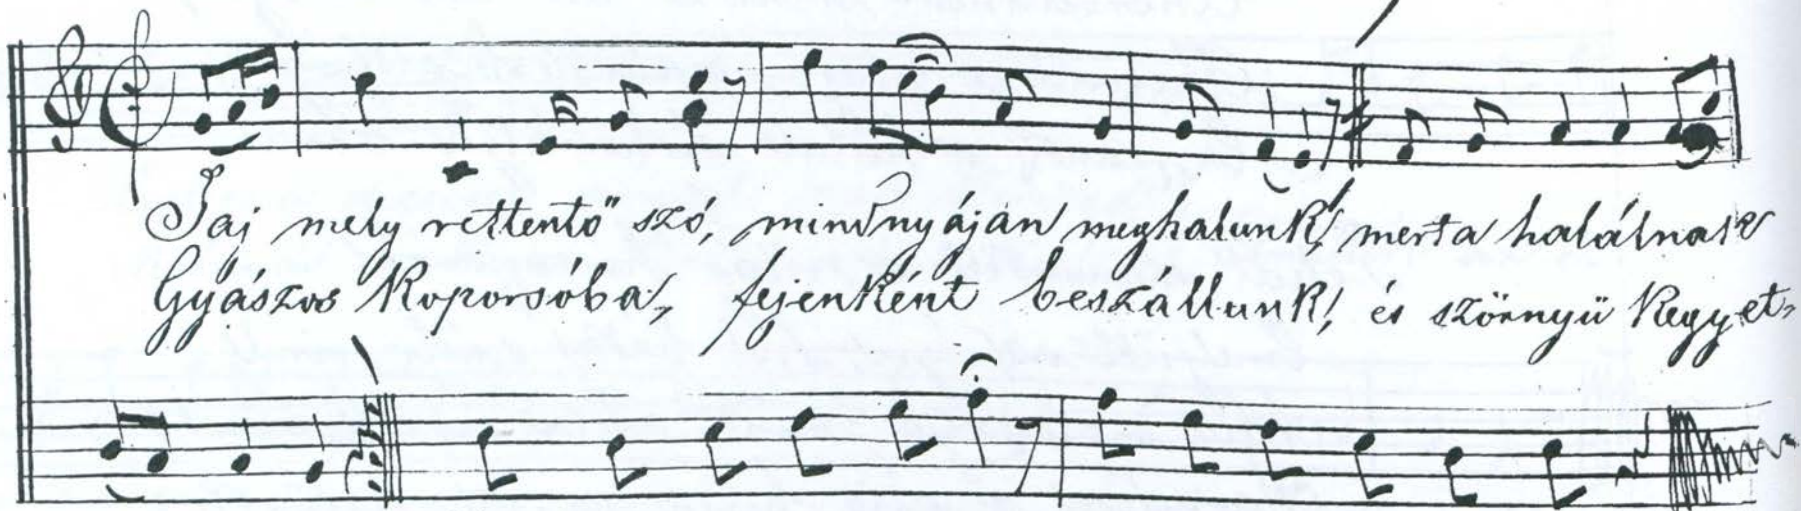 Jaj mely rettentő szó, mindnyáján meghalunk! mert a halálnak
Gyászos koporsóba, fejenként beszállunk! és szörnyü kegyet-